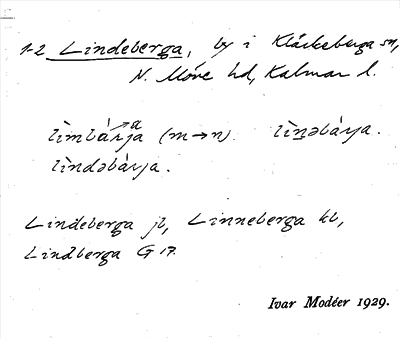 1-2 Lindeberga, by i Kläckeberga sn,
N. Möre hd, Kalmar l.
a
lìmbárja (m→n). lìnəbárja.
lìndəbárja.
Lindeberga jb, Linneberga kb,
Lindberga G 17.
Ivar Modéer 1929.